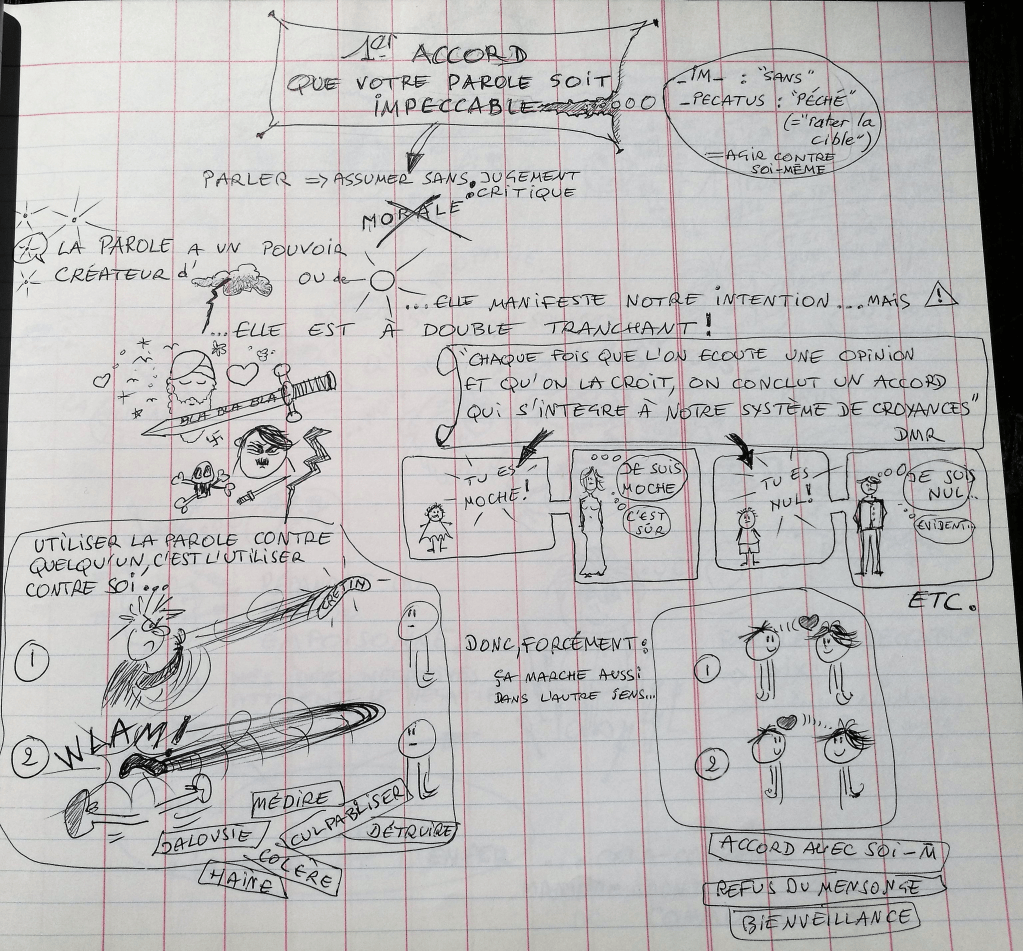 1er ACCORD
QUE VOTRE PAROLE SOIT
IMPECCABLE
_IM_ : "SANS"
_PECATUS : "PÉCHÉ"
(="rater la
cible")
=AGIR CONTRE
SOI-MÊME
PARLER => ASSUMER SANS : JUGEMENT
: CRITIQUE
MORALE
LA PAROLE A UN POUVOIR
CRÉATEUR d' OU de
...ELLE MANIFESTE NOTRE INTENTION...MAIS
...ELLE EST À DOUBLE TRANCHANT!
BLA BLA BLA
"CHAQUE FOIS QUE L'ON ECOUTE UNE OPINION
ET QU'ON LA CROIT, ON CONCLUT UN ACCORD
QUI S'INTEGRE À NOTRE SYSTÈME DE CROYANCES"
DMR
TU ES
MOCHE!
JE SUIS
MOCHE
C'EST
SÛR
TU ES
NUL!
JE SUIS
NUL...
EVIDENT...
ETC.
UTILISER LA PAROLE CONTRE
QUELQU'UN, C'EST L'UTILISER
CONTRE SOI...
CRÉTIN
1
2
WLAM!
MÉDIRE
CULPABLISER
JALOUSIE
DÉTRUIRE
COLÈRE
HAINE
DONC, FORCÉMENT:
ÇA MARCHE AUSSI
DANS L'AUTRE SENS...
1
2
ACCORD AVEC SOI-M̄
REFUS DU MENSONGE
BIENVEILLANCE